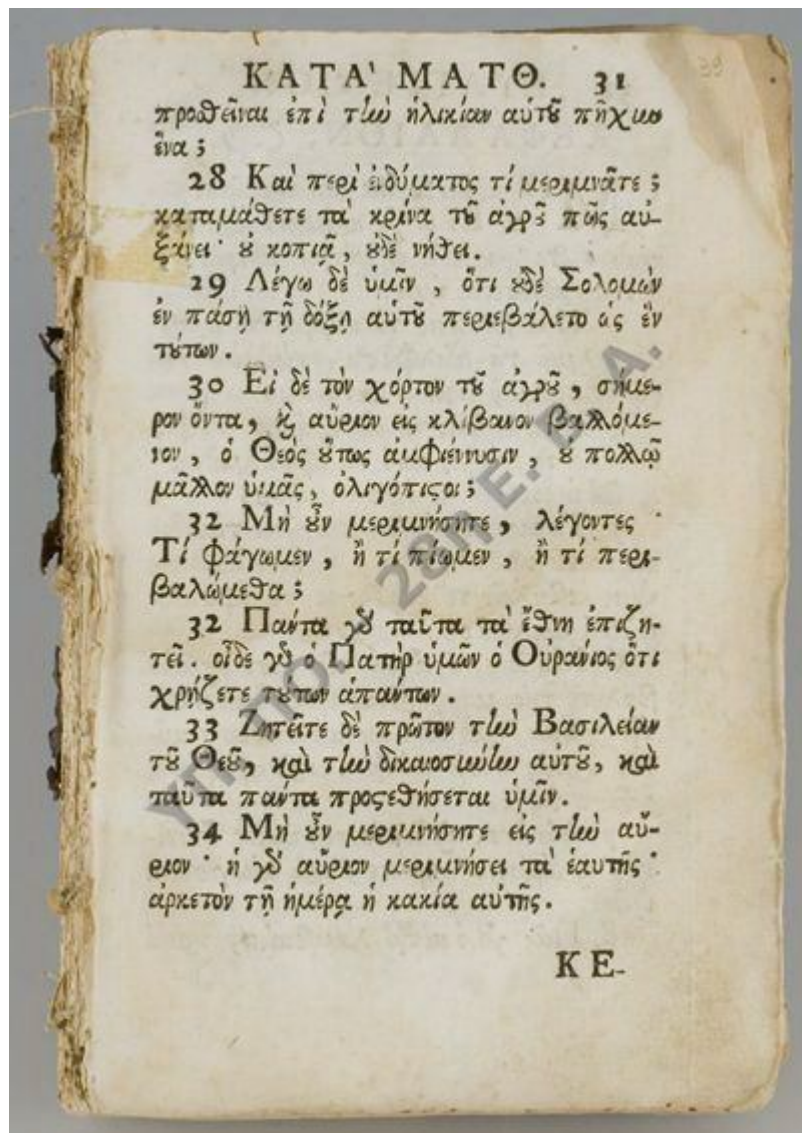 ΚΑΤΑ' ΜΑΤΘ. 31
προσθεῖναι ἐπὶ τὴν ἡλικίαν αὐτȣ͂ πῆχυν
ἕνα ;
28 Καὶ περὶ ἐνδύματος τί μεριμνᾶτε ;
καταμάθετε τὰ κρίνα τȣ͂ ἀγρȣ͂ πῶς αὐ-
ξάνει · ȣ̓ κοπιᾷ , ȣ̓δὲ νήθει .
29 Λέγω δὲ ὑμῖν , ὅτι ȣ̓δὲ Σολομὼν
ἐν πάσῃ τῇ δόξῃ αὐτȣ͂ περιεβάλετο ὡς ἓν
τȣ́των .
30 Εἰ δὲ τὸν χόρτον τȣ͂ ἀγρȣ͂ , σήμε-
ρον ὄντα , ϗ αὔριον εἰς κλίβανον βαλλόμε-
νον , ὁ Θεὸς ȣ̔́τως ἀμφιέννυσιν , ȣ̓ πολλῷ
μᾶλλον ὑμᾶς , ὀλιγόπιϛοι ;
32 Μὴ ȣ̓͂ν μεριμνήσητε , λέγοντες ·
Τί φάγωμεν , ἢ τί πίωμεν , ἢ τί περι-
βαλώμεθα ;
32 Πάντα γὸ ταῦτα τὰ ἔθνη ἐπιζη-
τεῖ . οἶδε γὸ ὁ Πατὴρ ὑμῶν ὁ Οὐράνιος ὅτι
χρῄζετε τȣ́των ἁπάντων .
33 Ζητεῖτε δὲ πρῶτον τὴν Βασιλείαν
τȣ͂ Θεȣ͂ , καὶ τὴν δικαιοσύνην αὐτȣ͂ , καὶ
ταῦτα πάντα προςεθήσεται ὑμῖν .
34 Μὴ ȣ̓͂ν μεριμνήσητε εἰς τὴν αὔ-
ριον · ἡ γὸ αὔριον μεριμνήσει τὰ ἑαυτῆς ·
ἀρκετὸν τῇ ἡμέρᾳ ἡ κακία αὐτῆς .
ΚΕ-
39
ΥΠ. ΠΟ. - 28η Ε. Β. Α.